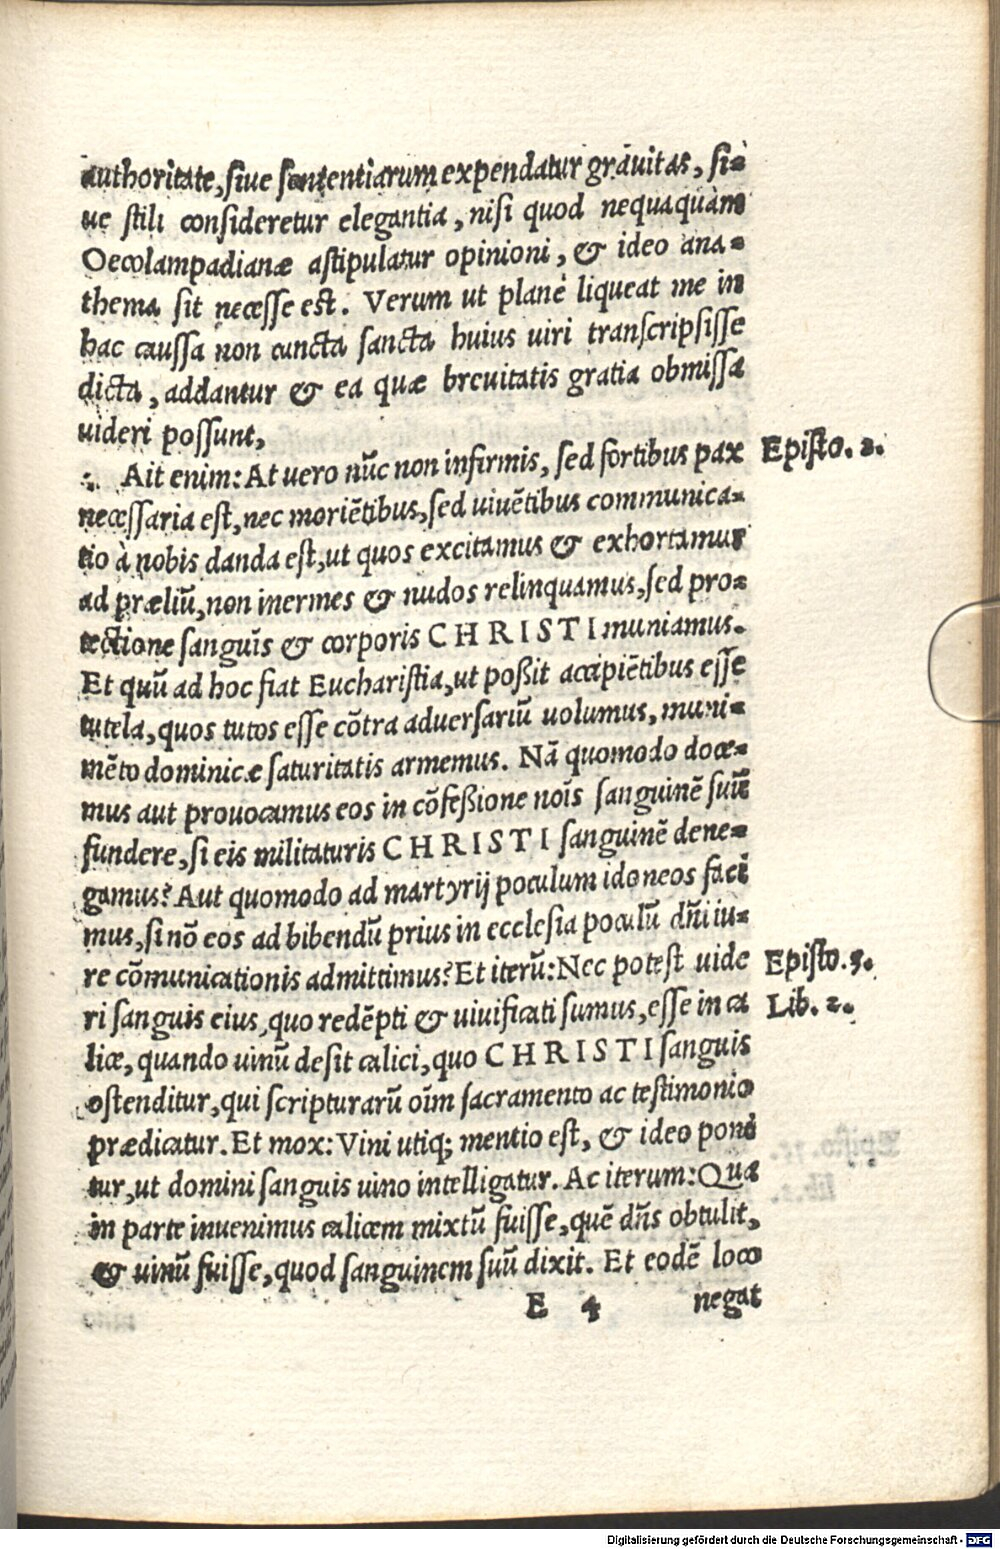 authoritate, siue sententiarum expendatur grauitas, si-
ue stili consideretur elegantia, nisi quod nequaquàm
Oecolampadianæ astipulatur opinioni, & ideo ana-
thema sit necesse est. Verum ut planè liqueat me in
hac caussa non cuncta sancta huius uiri transcripsisse
dicta, addantur & ea quæ breuitatis gratia obmissa
uideri possunt,
Ait enim: At uero nūc non infirmis, sed fortibus pax Episto. 2.
necessaria est, nec moriētibus, sed uiuētibus communica-
tio à nobis danda est, ut quos excitamus & exhortamur
ad præliū, non inermes & nudos relinquamus, sed pro-
tectione sanguīs & corporis CHRISTI muniamus.
Et quū ad hoc fiat Eucharistia, ut poßit accipiētibus esse
tutela, quos tutos esse cōtra aduersariū uolumus, muni-
mēto dominicæ saturitatis armemus. Nā quomodo doce-
mus aut prouocamus eos in cōfeßione noīs sanguinē suū
fundere, si eis militaturis CHRISTI sanguinē dene-
gamus? Aut quomodo ad martyrij poculum idoneos faci
mus, si nō eos ad bibendū prius in ecclesia poculū dn̄i iu-
re cōmunicationis admittimus? Et iterū: Nec potest uide Episto. 3.
ri sanguis eius, quo redēpti & uiuificati sumus, esse in ca Lib. 2.
lice, quando uinū desit calici, quo CHRISTI sanguis
ostenditur, qui scripturarū oīm sacramento ac testimonio
prædicatur. Et mox: Vini utiq; mentio est, & ideo poni
tur, ut domini sanguis uino intelligatur. Ac iterum: Qua
in parte inuenimus calicem mixtū fuisse, quē dn̄s obtulit,
& uinū fuisse, quod sanguinem suū dixit. Et eodē loco
E 4 negat
Digitalisierung gefördert durch die Deutsche Forschungsgemeinschaft - DFG